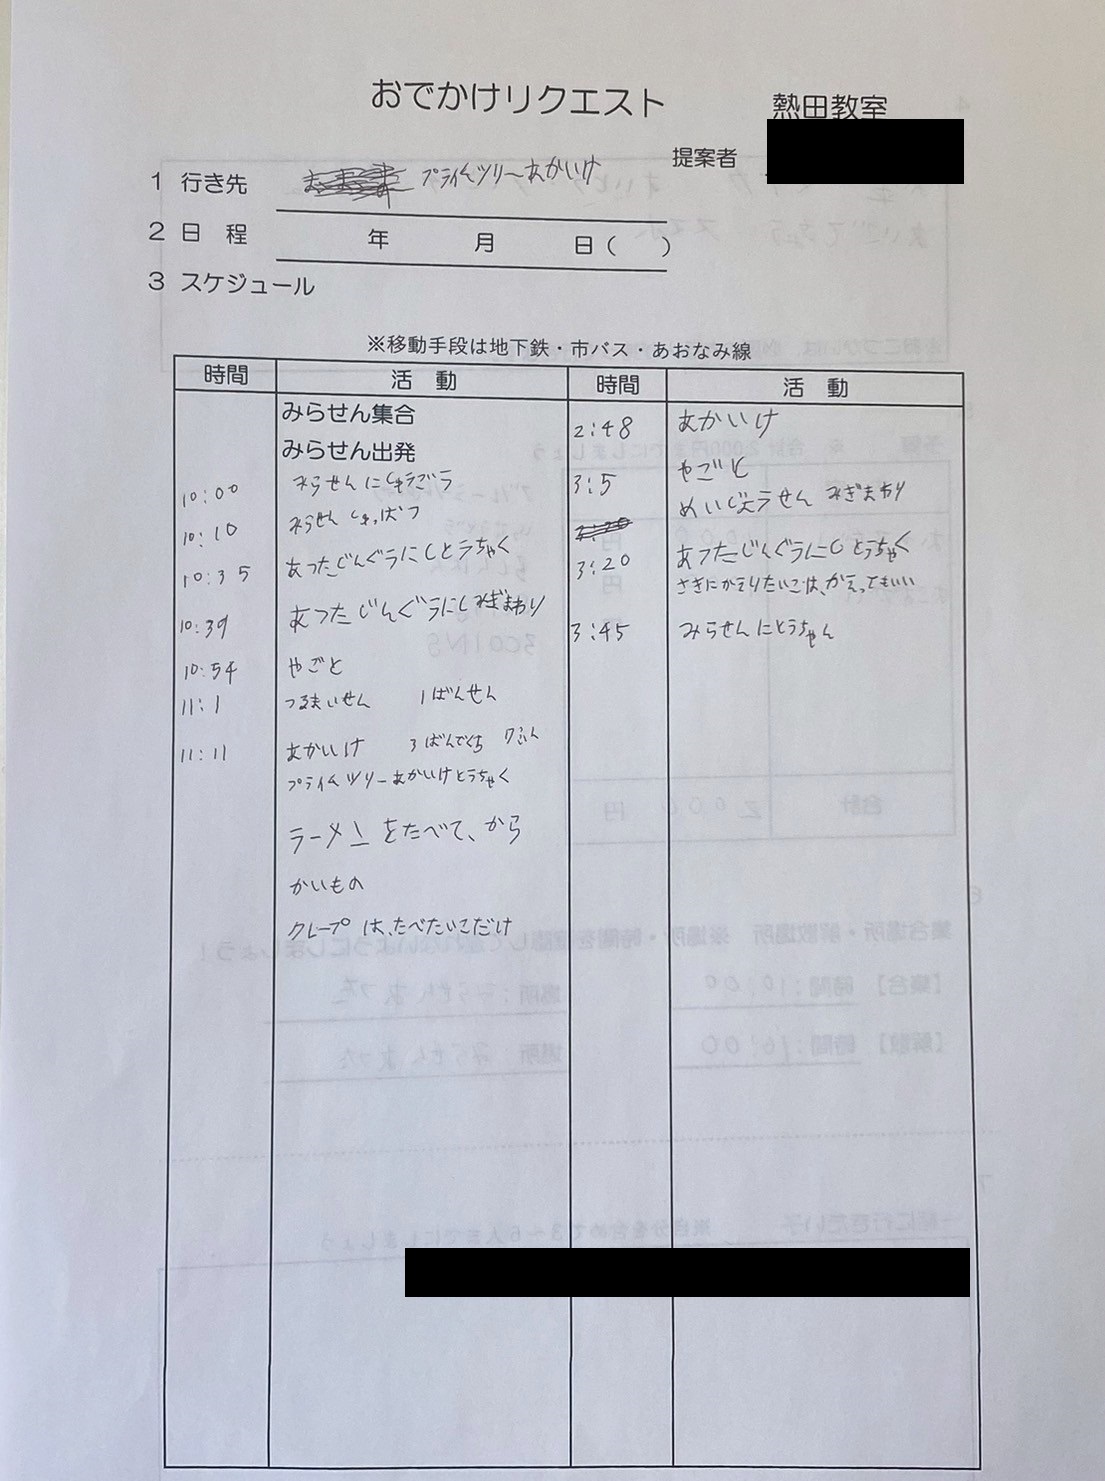 おでかけリクエスト
熱田教室
提案者
1 行き先 プライムツリーあかいけ
2 日 程 年 月 日( )
3 スケジュール
※移動手段は地下鉄・市バス・あおなみ線
時間 活 動 時間 活 動
みらせん集合
みらせん出発
10:00 みらせんにしゅうごう
10:10 みらせんしゅっぱつ
10:35 あつたじんぐうにしとうちゃく
10:39 あつたじんぐうにしみぎまわり
10:54 やごと
11:1 つるまいせん 1ばんせん
11:11 あかいけ 3ばんでぐち 7ふん
プライムツリーあかいけとうちゃく
ラーメンをたべて、から
かいもの
クレープは、たべたいこだけ
2:48 あかいけ
3:5 やごと
めいじょうせん みぎまわり
3:20 あつたじんぐうにしとうちゃく
さきにかえりたいこは、かえってもいい
3:45 みらせんにとうちゃく